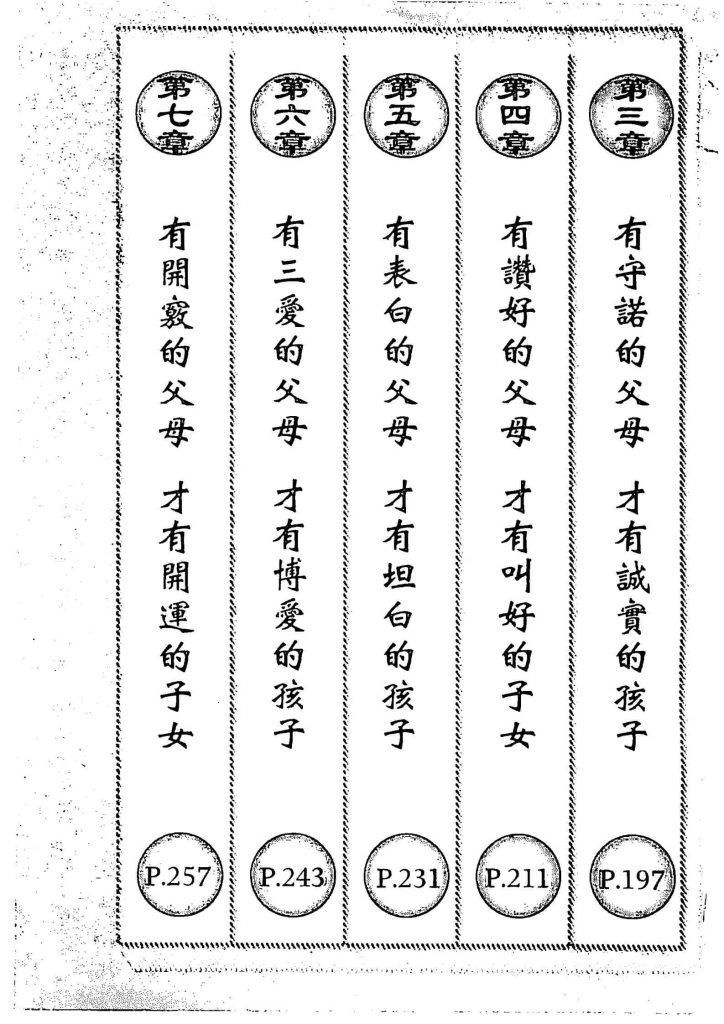 第三章
有守諾的父母 才有誠實的孩子
P.197
第四章
有讚好的父母 才有叫好的子女
P.211
第五章
有表白的父母 才有坦白的孩子
P.231
第六章
有三愛的父母 才有博愛的孩子
P.243
第七章
有開竅的父母 才有開運的子女
P.257